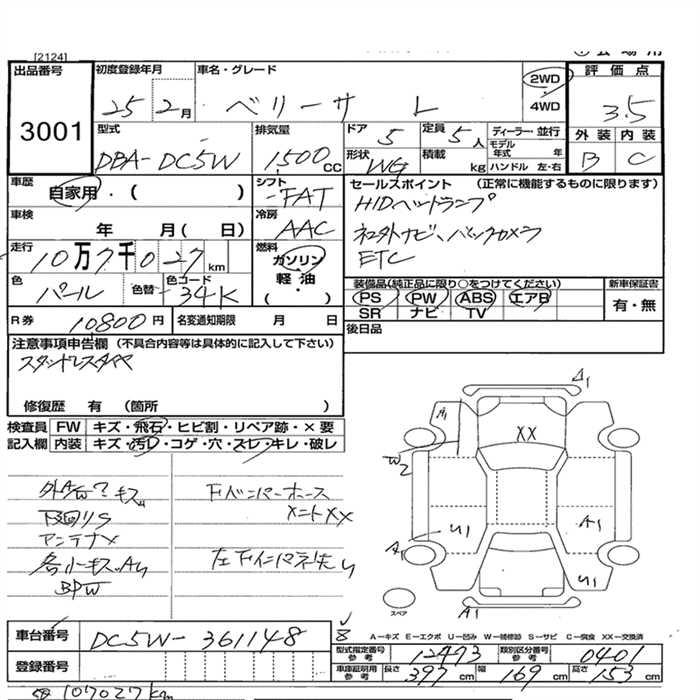 [2124]
出品番号
3001
初度登録年月
25 2月
車名・グレード
ベリーサ L
2WD
4WD
評価点
3.5
外装 内装
B C
型式
DBA-DC5W
排気量
1500cc
ドア 5
定員 5人
形状 WG
積載 kg
ディーラー・並行
モデル年式 年
ハンドル 左・右
車歴
自家用・( )
シフト
FAT
車検
年 月( 日)
冷房
AAC
走行
10万7千027km
燃料
ガソリン
軽油
( ・ )
色
パール
色替
色コード
34K
セールスポイント (正常に機能するものに限ります)
HIDヘッドランプ
ナビ、バックカメラ
ETC
装備品(純正品に限り○をつけてください)
PS PW ABS エアB
SR ナビ TV
新車保証書
有・無
R券 10800円
名変通知期限 月 日
後日品
注意事項申告欄 (不具合内容等は具体的に記入して下さい)
スタッドレスタイヤ
修復歴 有 (箇所 )
検査員 FW キズ・飛石・ヒビ割・リペア跡・×要
記入欄 内装 キズ・汚レ・コゲ・穴・スレ・キレ・破レ
下回りS
アンテナ×
各小キズ、AU
BPW
XX
A1
A1
W2
U1
A1
A1
U1
A1
スペア
A―キズ E―エクボ U―凹み W―補修跡 S―サビ C―腐食 XX―交換済
車台番号
DC5W-361148
登録番号
型式指定番号 参考
12473
類別区分番号 参考
0401
車庫証明用 参考
長さ 397 cm
幅 169 cm
高さ 153 cm
107027km